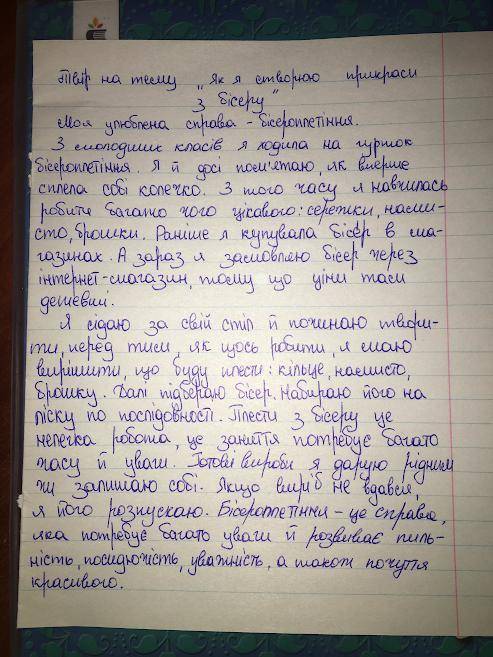 Твір на тему „Як я створюю прикраси
з бісеру"
Моя улюблена справа - бісероплетіння.
З молодших класів я ходила на гурток
бісероплетіння. Я й досі пам'ятаю, як вперше
сплела собі колечко. З того часу я навчилась
робити багато чого цікавого: сережки, нами-
сто, брошки. Раніше я купувала бісер в ма-
газинах. А зараз я замовляю бісер через
інтернет-магазин, тому що ціни там
дешевші.
Я сідаю за свій стіл й починаю твори-
ти, перед тим, як щось робити, я маю
вирішити, що буду плести: кільце, намисто,
брошку. Далі підбираю бісер. Набираю його на
ліску по послідовності. Плести з бісеру це
нелегка робота, це заняття потребує багато
часу й уваги. Готові вироби я дарую рідним
чи залишаю собі. Якщо виріб не вдався,
я його розпускаю. Бісероплетіння - це справа,
яка потребує багато уваги й розвиває пиль-
ність, посидючість, уважність, а також почуття
красивого.